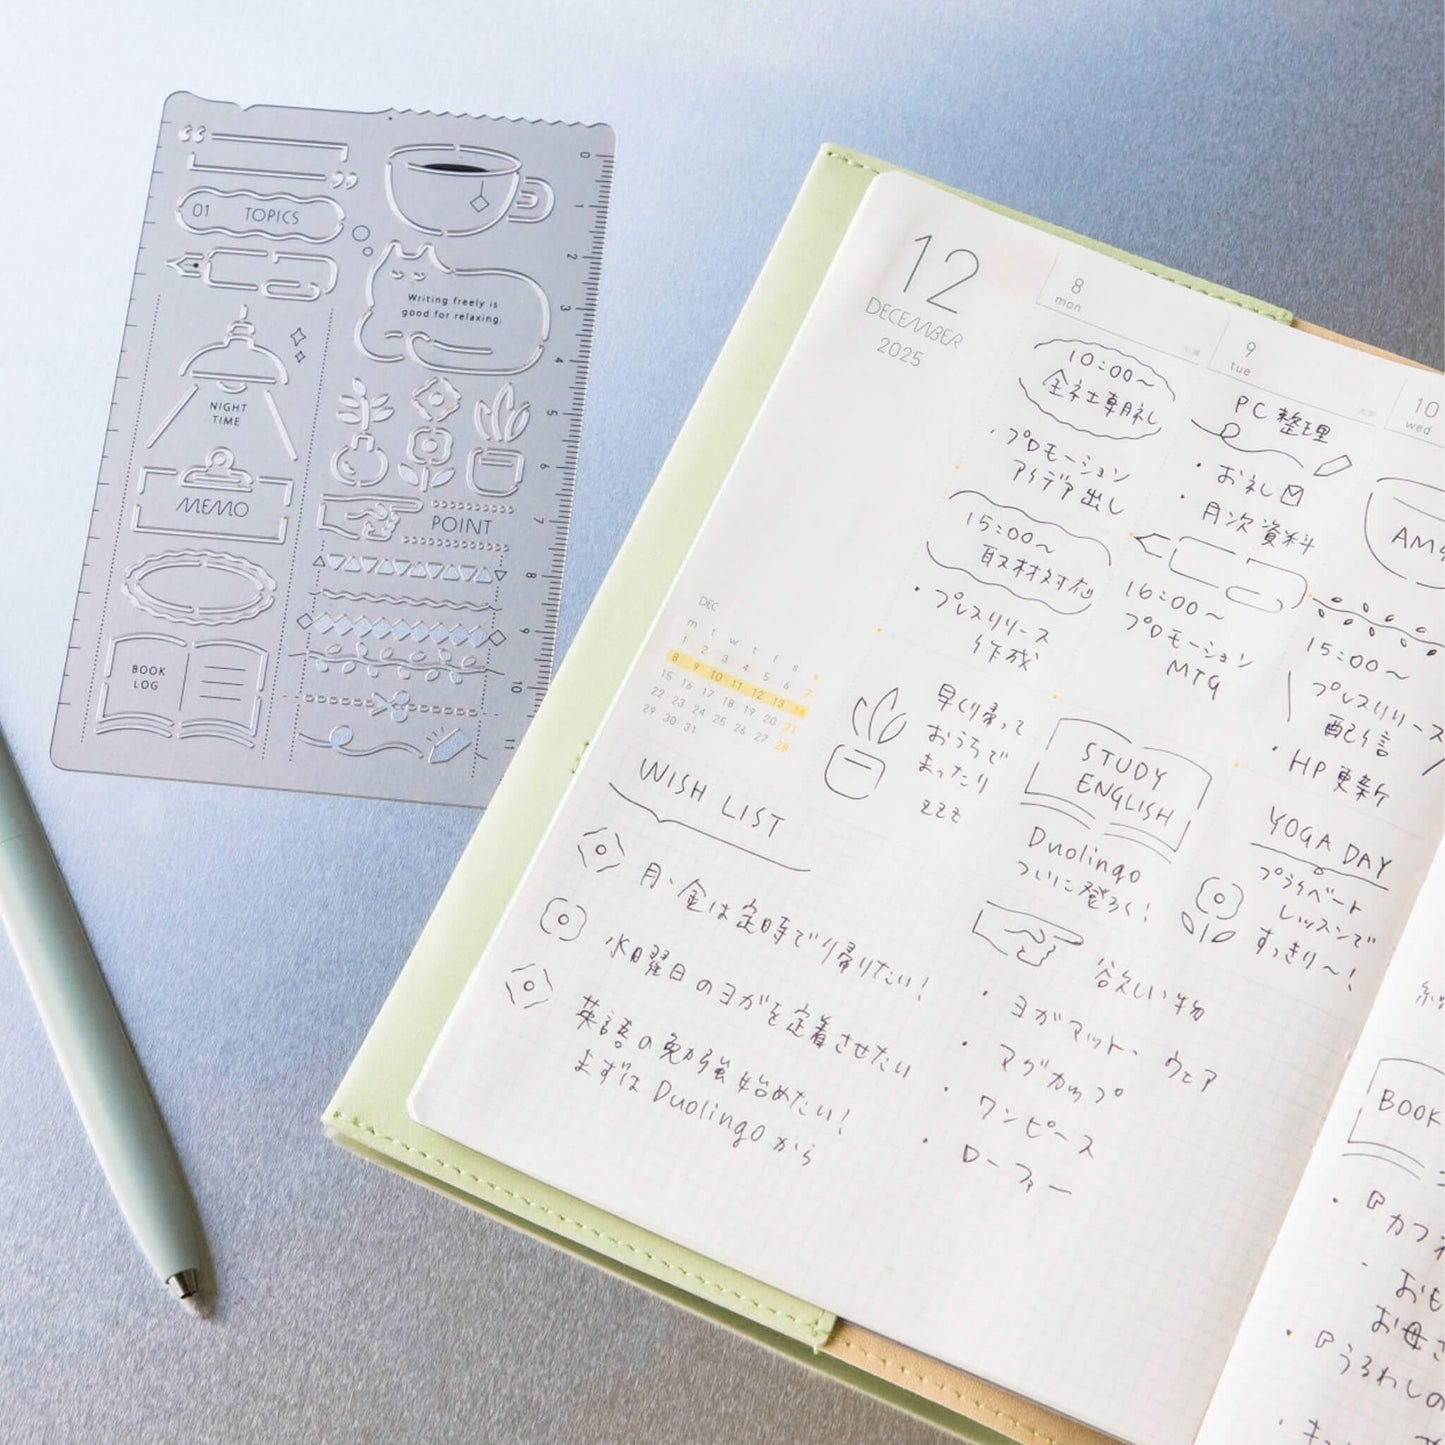 01 TOPICS
Writing freely is
good for relaxing.
NIGHT
TIME
MEMO
POINT
BOOK
LOG
0
1
2
3
4
5
6
7
8
9
10
11
12
DECEMBER
2025
8
mon
10:00〜
全社朝礼
・プロモーション
アイデア出し
15:00〜
取材対応
・プレスリリース
作成
早く帰って
おうちで
まったり
zzz
9
tue
PC整理
・お礼〆
・月次資料
16:00〜
プロモーション
MTG
STUDY
ENGLISH
Duolingo
ついに登ろく!
10
wed
AM
15:00〜
プレスリリース
配信
・HP更新
YOGA DAY
プライベート
レッスンで
すっきり〜!
DEC
m t w t f s s
1 2 3 4 5 6 7
8 9 10 11 12 13 14
15 16 17 18 19 20 21
22 23 24 25 26 27 28
29 30 31
WISH LIST
月・金は定時で帰りたい!
水曜日のヨガを定着させたい
英語の勉強始めたい!
まずはDuolingoから
欲しい物
・ヨガマット・ウェア
・マグカップ
・ワンピース
・ローファー
BOOK
・『カフェ
おも
お母さ
・『うるわしの